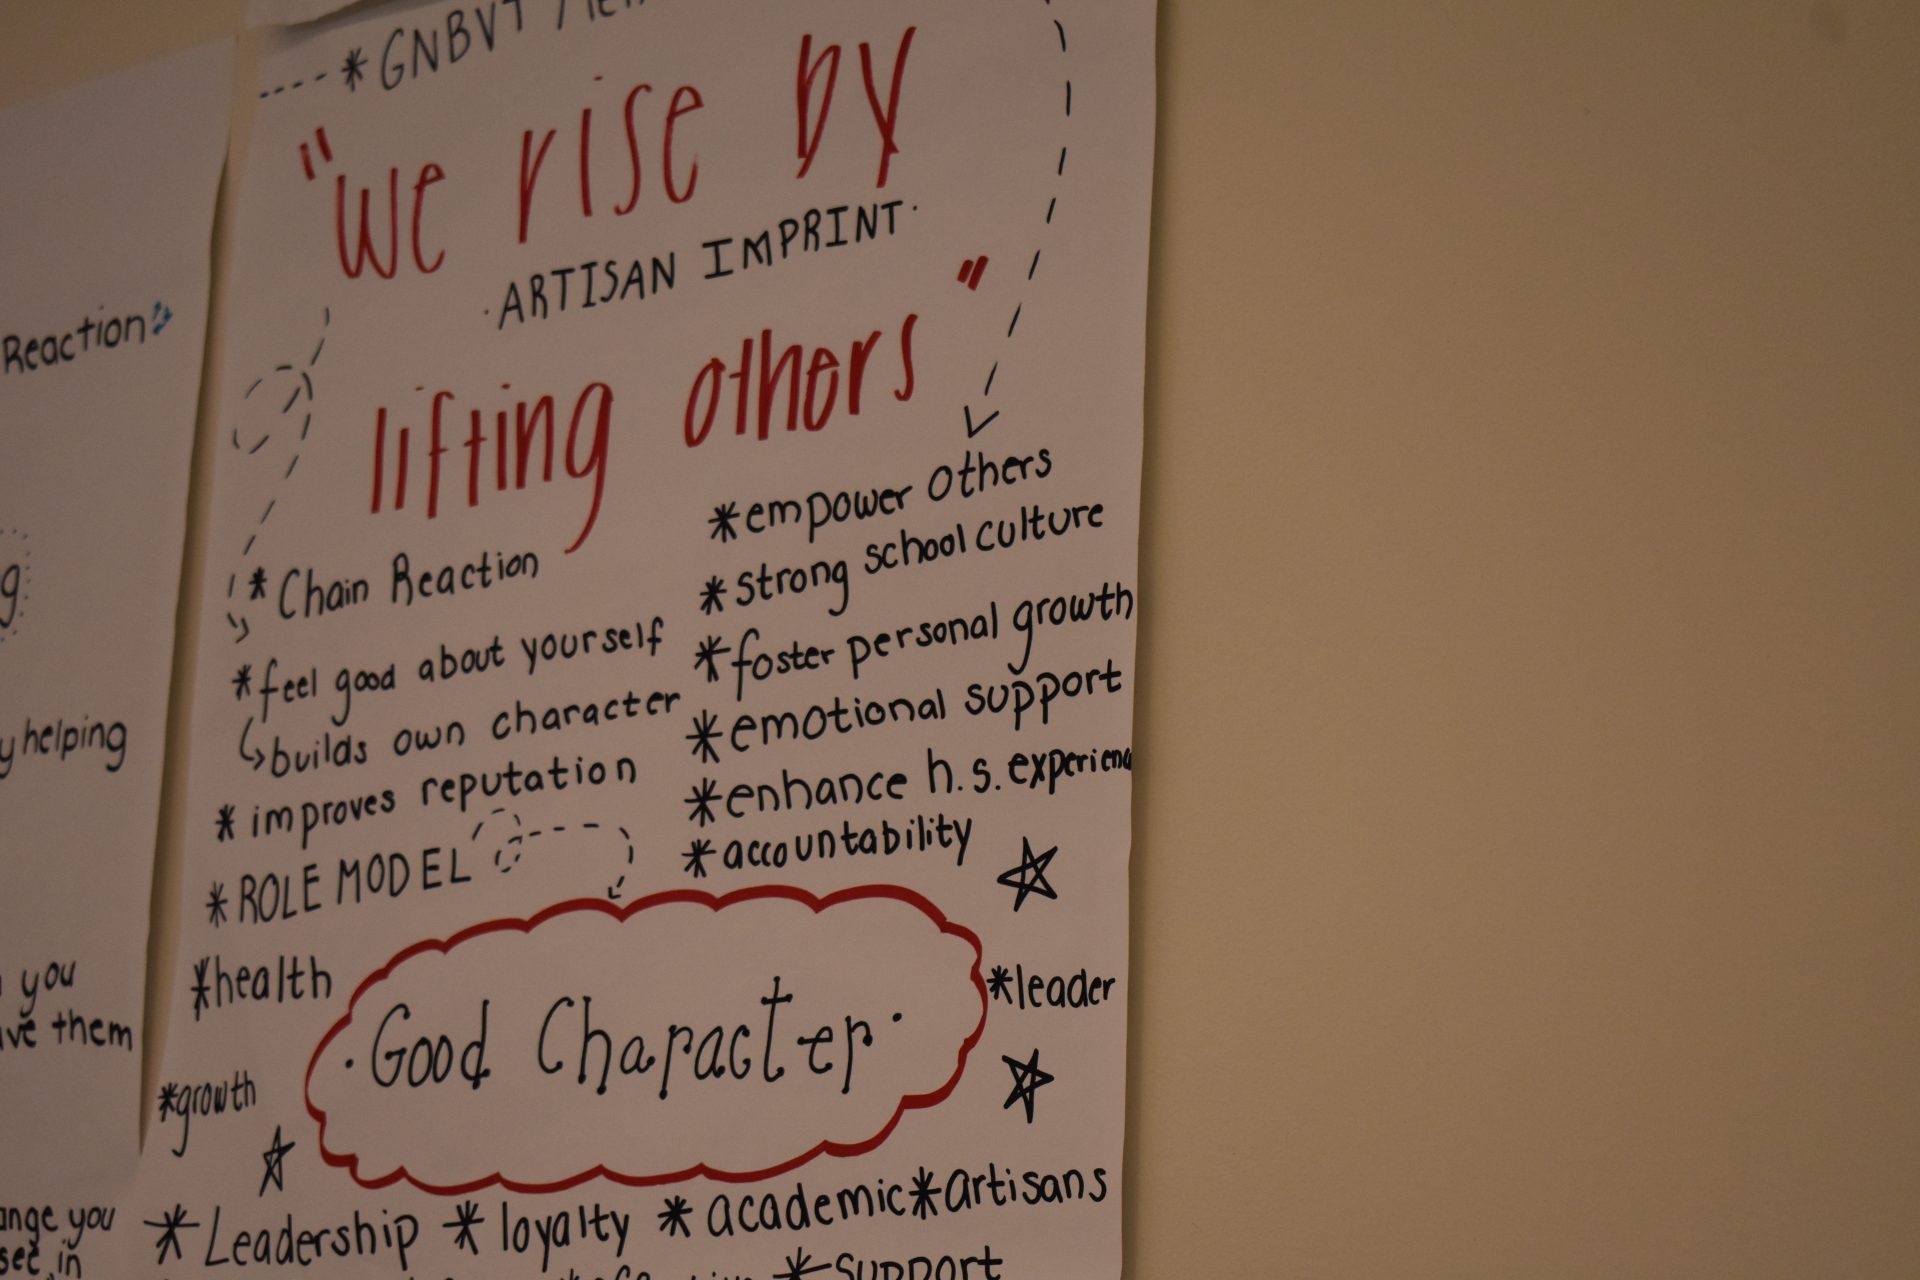 *GNBVT
"we rise by
·ARTISAN IMPRINT·
lifting others"
*Chain Reaction
*feel good about yourself
↳builds own character
*improves reputation
*ROLE MODEL
*health
*growth
*empower others
*strong school culture
*foster personal growth
*emotional support
*enhance h.s. experienc
*accountability
*leader
·Good Character·
*Leadership *loyalty *academic *artisans
*support
Reaction
g
y helping
you
ve them
ange you
see in